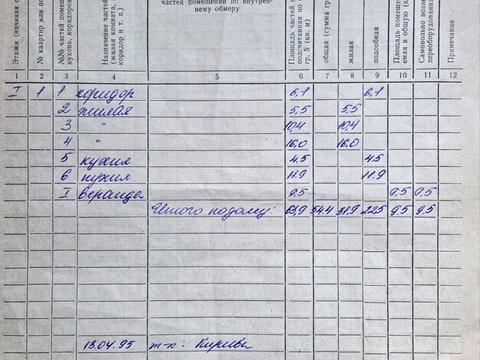 Этажи (начиная с
№ квартир или по
№№ частей помещ
кухонь, коридоров
Назначение частей
(жилая комната,
коридор и т. п.)
частей помещений по внутрен-
нему обмеру
Площадь частей п
подсчитанная по
гр. 5 (кв. м)
общая (сумма гр
жилая
подсобная
Площадь помеще
емая в общую (к
Самовольно возв
переоборудованн
Примечание
1 2 3 4 5 6 7 8 9 10 11 12
I 1 1 коридор 6,1 6,1
2 жилая 5,5 5,5
3 " 10,4 10,4
4 " 16,0 16,0
5 кухня 4.5 4.5
6 кухня 11.9 11.9
I веранда 9.5 9.5 9.5
Итого по дому: 63,9 54.4 31.9 22.5 9.5 9.5
13.04.95 т-к: